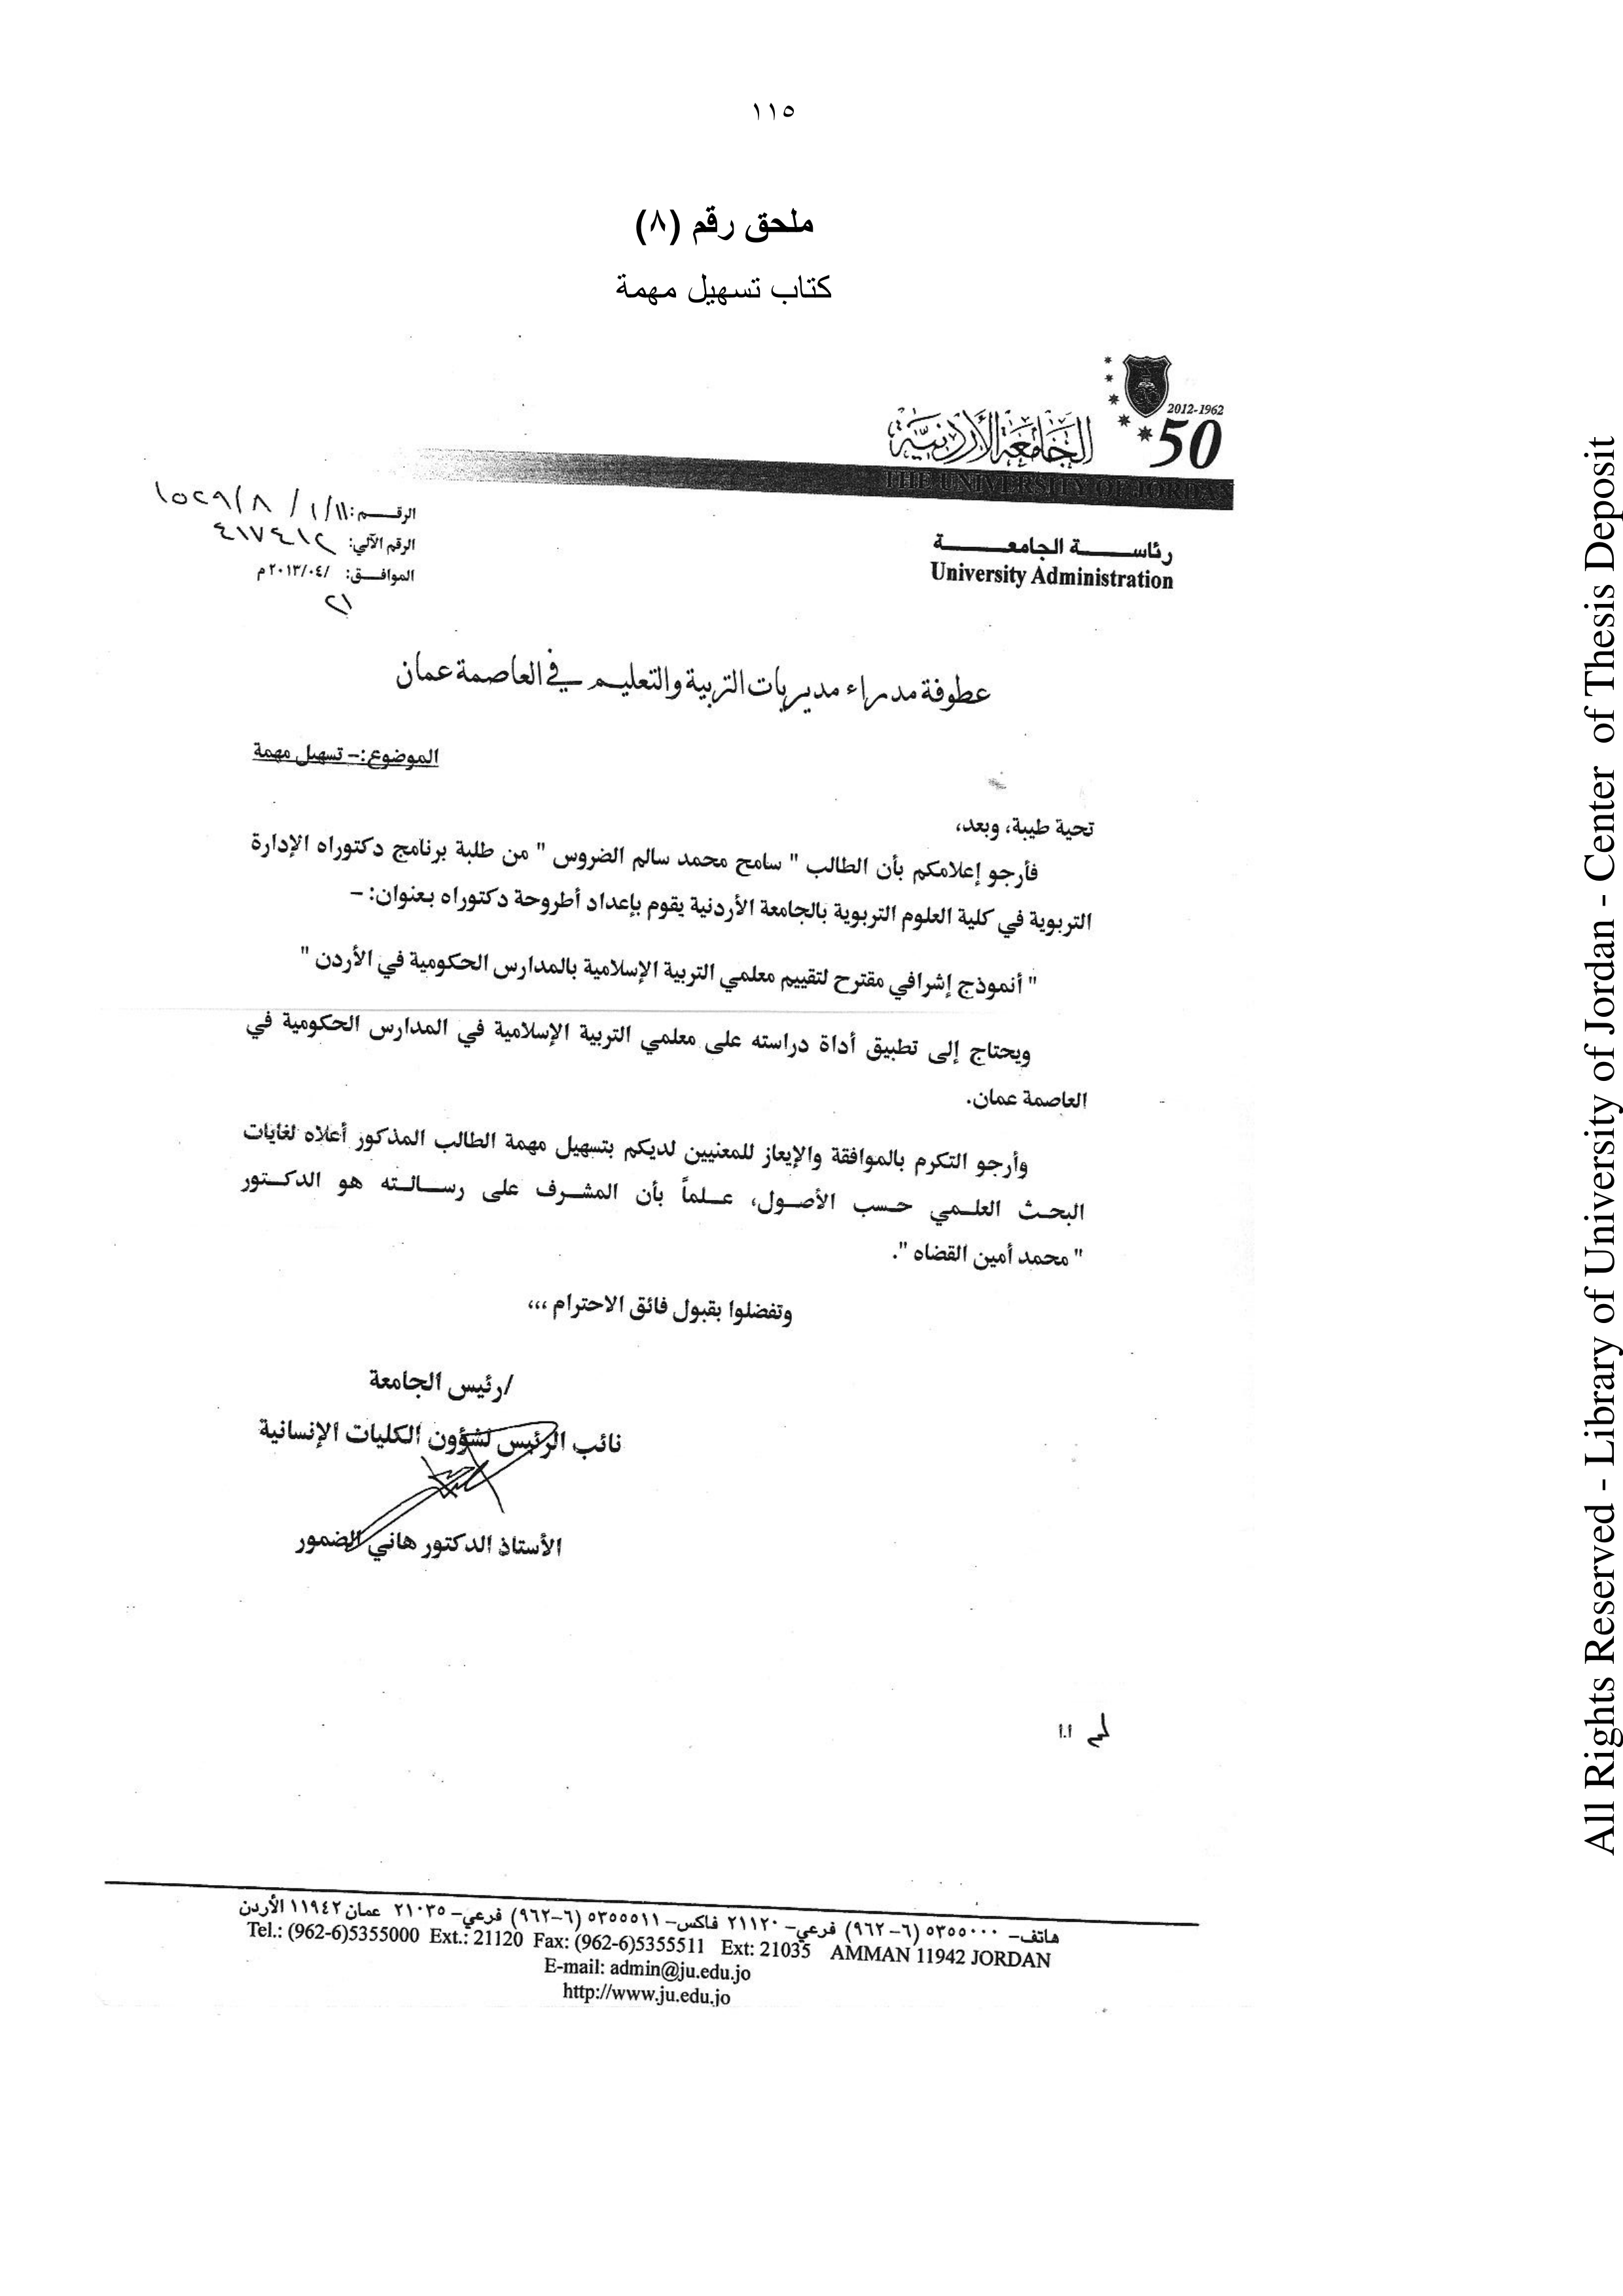 ١١٥
ملحق رقم (٨)
كتاب تسهيل مهمة
2012-1962
50
الجامعة الأردنية
THE UNIVERSITY OF JORDAN
رئاســـة الجامعـــة
University Administration
الرقــم: ١١/١/ ١٥٢٩/٨
الرقم الآلي: ٤١٧٤١٢
الموافــق: /٢٠١٣/٠٤م
٢١
عطوفة مدراء مديريات التربية والتعليم في العاصمة عمان
الموضوع:– تسهيل مهمة
تحية طيبة، وبعد،
فأرجو إعلامكم بأن الطالب " سامح محمد سالم الضروس " من طلبة برنامج دكتوراه الإدارة
التربوية في كلية العلوم التربوية بالجامعة الأردنية يقوم بإعداد أطروحة دكتوراه بعنوان: –
" أنموذج إشرافي مقترح لتقييم معلمي التربية الإسلامية بالمدارس الحكومية في الأردن "
ويحتاج إلى تطبيق أداة دراسته على معلمي التربية الإسلامية في المدارس الحكومية في
العاصمة عمان.
وأرجو التكرم بالموافقة والإيعاز للمعنيين لديكم بتسهيل مهمة الطالب المذكور أعلاه لغايات
البحث العلمي حسب الأصول، علماً بأن المشرف على رسالته هو الدكتور
" محمد أمين القضاه ".
وتفضلوا بقبول فائق الاحترام ،،،
/رئيس الجامعة
نائب الرئيس لشؤون الكليات الإنسانية
الأستاذ الدكتور هاني الضمور
هاتف– ٥٣٥٥٠٠٠ (٦–٩٦٢) فرعي– ٢١١٢٠ فاكس– ٥٣٥٥٥١١ (٦–٩٦٢) فرعي– ٢١٠٣٥ عمان ١١٩٤٢ الأردن
Tel.: (962-6)5355000 Ext.: 21120 Fax: (962-6)5355511 Ext: 21035 AMMAN 11942 JORDAN
E-mail: admin@ju.edu.jo
http://www.ju.edu.jo
All Rights Reserved - Library of University of Jordan - Center of Thesis Deposit